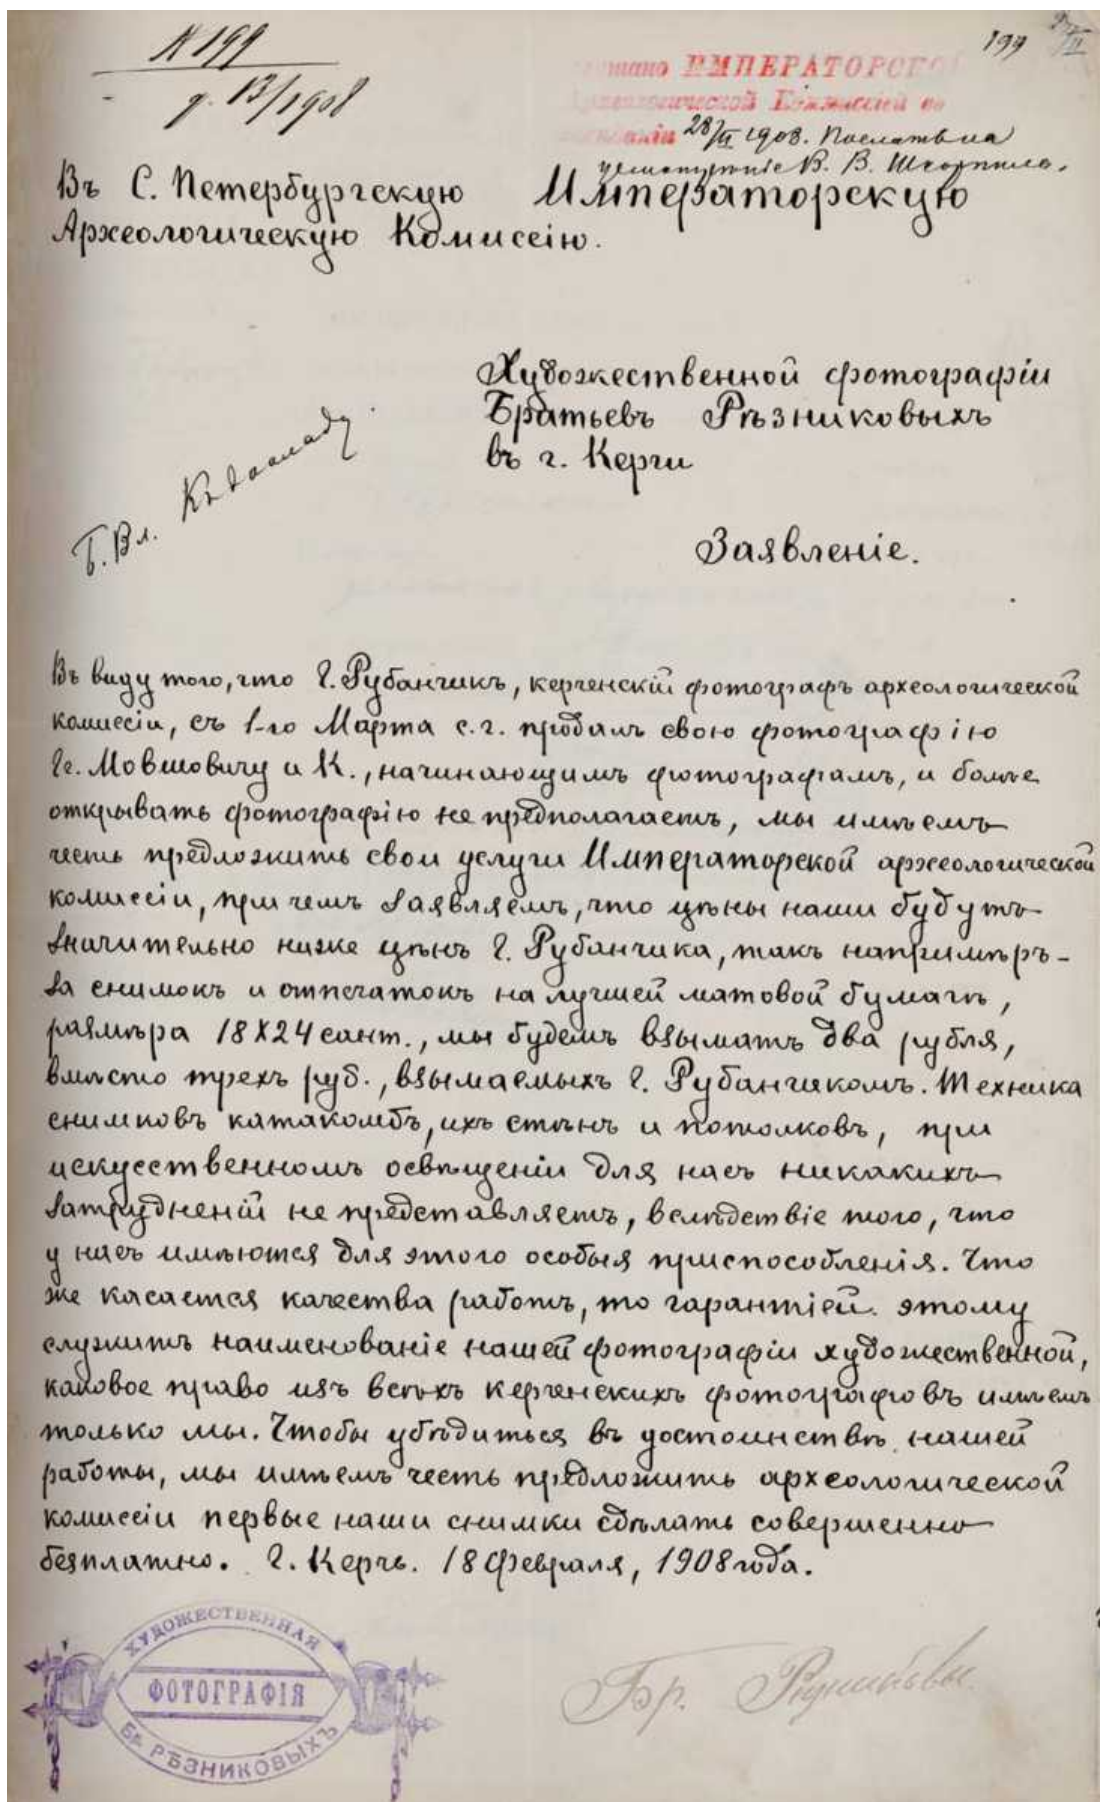 № 199
д. 13/1908
199
ИМПЕРАТОРСКО
Археологической Коммиссией во
28/II 1908. Послать на
усмотрѣніе В. В. Шкорпила.
Въ С. Петербургскую Императорскую
Археологическую Комиссію.
Художественной фотографіи
Братьевъ Рѣзниковыхъ
въ г. Керчи
Б. Вл. Къ докладу
Заявленіе.
Въ виду того, что Г. Рубанчикъ, керченскій фотографъ археологической
комиссіи, съ 1-го Марта с. г. продалъ свою фотографію
Гг. Мовшовичу и К., начинающимъ фотографамъ, и болѣе
открывать фотографію не предполагаетъ, мы имѣемъ
честь предложить свои услуги Императорской археологической
комиссіи, при чемъ заявляемъ, что цѣны наши будутъ
значительно ниже цѣнъ Г. Рубанчика, такъ напримѣръ-
за снимокъ и отпечатокъ на лучшей матовой бумагѣ,
размѣра 18X24 сант., мы будемъ взымать два рубля,
вмѣсто трехъ руб., взымаемыхъ Г. Рубанчикомъ. Техника
снимковъ катакомбъ, ихъ стѣнъ и потолковъ, при
искусственномъ освѣщеніи для насъ никакихъ
затрудненій не представляетъ, вслѣдствіе того, что
у насъ имѣются для этого особыя приспособленія. Что
же касается качества работъ, то гарантіей этому
служитъ наименованіе нашей фотографіи художественной,
каковое право изъ всѣхъ керченскихъ фотографовъ имѣемъ
только мы. Чтобы убѣдиться въ достоинствѣ нашей
работы, мы имѣемъ честь предложить археологической
комиссіи первые наши снимки сдѣлать совершенно
безплатно. Г. Керчь. 18 Февраля, 1908 года.
ХУДОЖЕСТВЕННАЯ
ФОТОГРАФІЯ
Бр. РѢЗНИКОВЫХЪ
Бр. Рѣзниковы